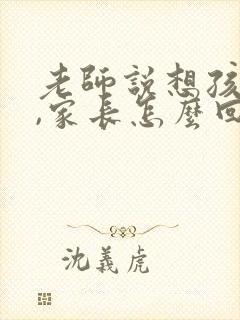 老師說想孩
,家長怎麼回
沈義虎